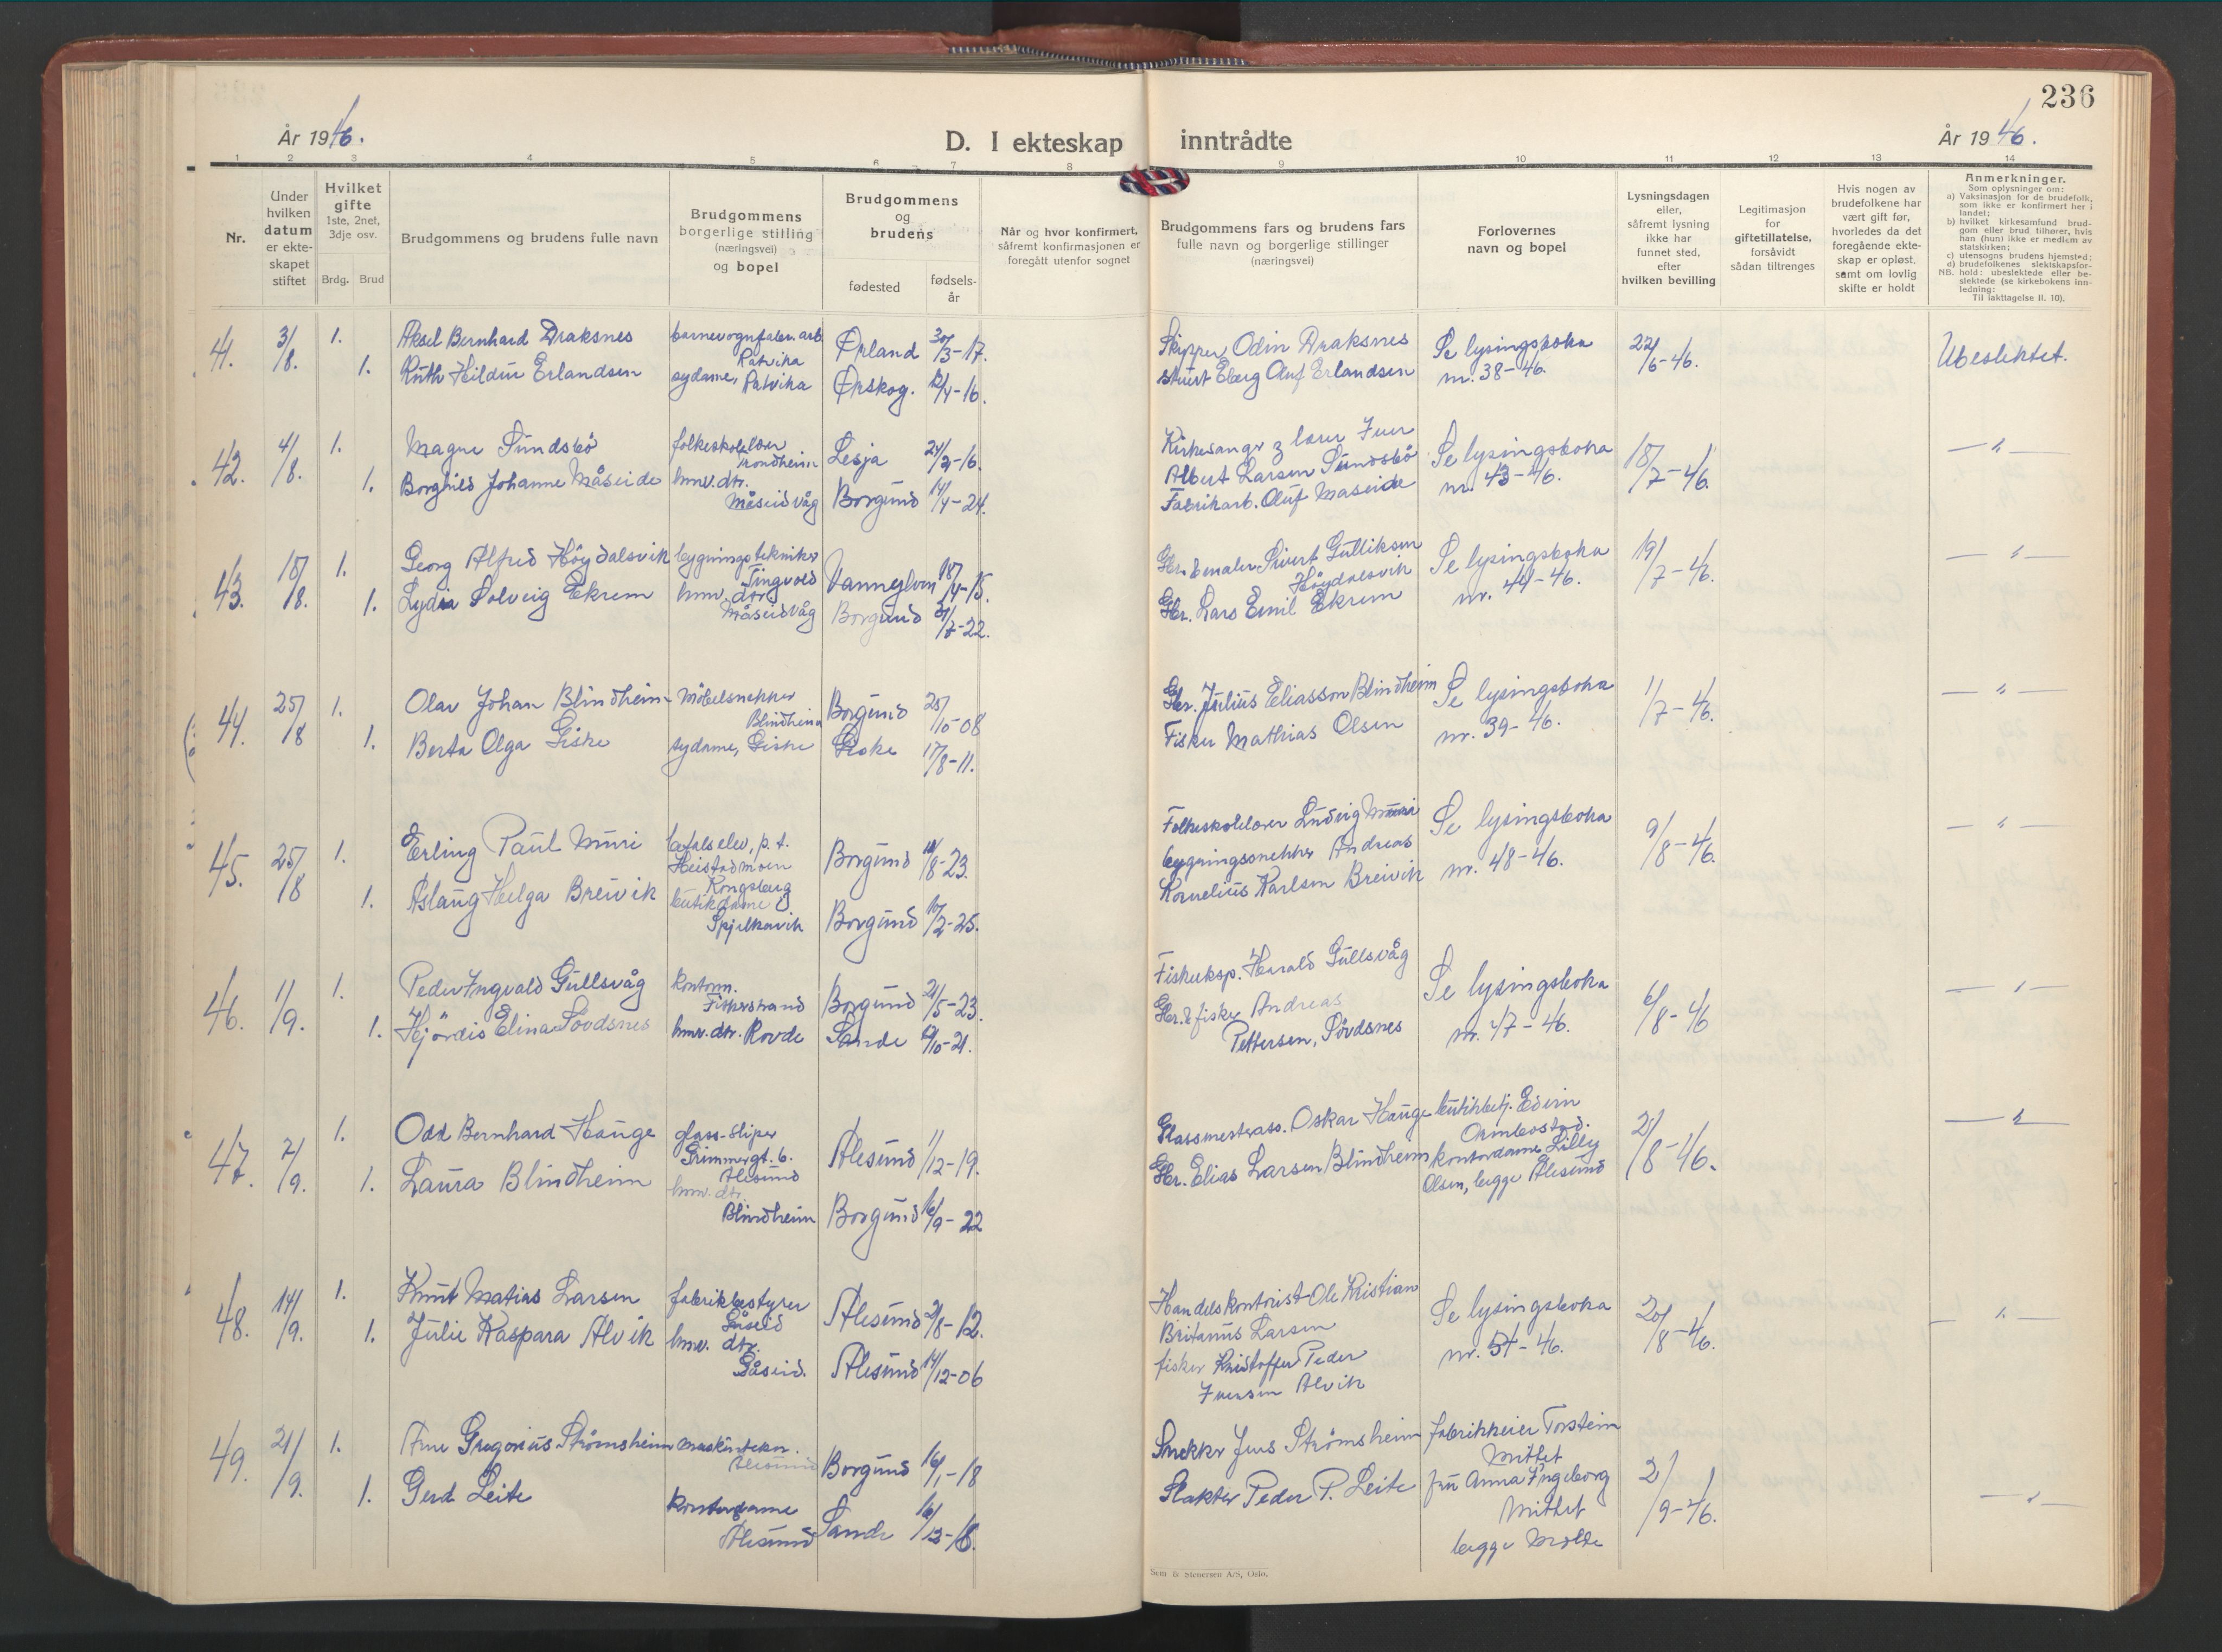 236
År 1946.
D. I ekteskap inntrådte
År 1946.
1 2 3 4 5 6 7 8 9 10 11 12 13 14
Nr.
Under hvilken datum er ekteskapet stiftet
Hvilket gifte 1ste, 2net, 3dje osv.
Brdg. Brud
Brudgommens og brudens fulle navn
Brudgommens borgerlige stilling (næringsvei) og bopel
Brudgommens og brudens
fødested
fødselsår
Når og hvor konfirmert, såfremt konfirmasjonen er foregått utenfor sognet
Brudgommens fars og brudens fars fulle navn og borgerlige stillinger (næringsvei)
Forlovernes navn og bopel
Lysningsdagen eller, såfremt lysning ikke har funnet sted, efter hvilken bevilling
Legitimasjon for giftetillatelse, forsåvidt sådan tiltrenges
Hvis nogen av brudefolkene har vært gift før, hvorledes da det foregående ekteskap er opløst, samt om lovlig skifte er holdt
Anmerkninger.
Som oplysninger om:
a) Vaksinasjon for de brudefolk, som ikke er konfirmert her i landet;
b) hvilket kirkesamfund brudgom eller brud tilhører, hvis han (hun) ikke er medlem av statskirken;
c) utensogns brudens hjemsted;
d) brudefolkenes slektskapsforhold: ubeslektede eller beslektede (se kirkebokens innledning:
NB. Til iakttagelse II. 10).
41. 3/8. 1. Aksel Bernhard Draksnes barnevognfabr. arb. Ratvika Ørland 30/3-17. Skipper Odin Draksnes Se lysingsboka nr. 38-46. 22/6-46. Ubeslektet.
1. Ruth Hildur Erlandsen sydame, Ratvika Ørskog. 12/4-16. Oluf Erlandsen
42. 4/8. 1. Magne Sundsbö folkeskolelærer Trondheim Lesja Kirkesanger & lærer Iver Albert Larsen Sundsbö Se lysingsboka nr. 43-46. 18/7-46. — " —
1. Borghild Johanne Måseide hmv. dtr. Måseidvåg Borgund 14/4-24. Fabrikarb. Oluf Maseide
43. 18/8. 1. Georg Alfred Höydalsvik bygningstekniker Tingvold Vannylven 18/4-15. Gbr. & maler Sivert Gulliksen Höydalsvik Se lysingsboka nr. 44-46. 19/7-46. — " —
1. Lydia Solveig Ekrem hmv. dtr. Måseidvåg Borgund 31/7-22. Gbr. Lars Emil Ekrem
44. 25/8 1. Olav Johan Blindheim Möbelsnekker Blindheim Borgund 25/10-08 Gbr. Julius Eliasson Blindheim Se lysingsboka nr. 39-46. 1/7-46. — " —
1. Berta Olga Giske sydame, Giske Giske 17/8-11. Fisker Mathias Olsen
45. 25/8 1. Erling Paul Muri befalselev, p.t. Heistadmoen Kongsberg Borgund 18/8-23. Folkeskolelærer Ludvig Muri Se lysingsboka nr. 48-46. 9/8-46. — " —
1. Aslaug Helga Breivik butikdame Spjelkavik Borgund 10/2-25. bygningssnekker Andreas Kornelius Karlsen Breivik
46. 1/9. 1. Peder Ingvald Gullsvåg kontorm. Fiskerstrand Borgund 21/5-23. Fiskeeksp. Harald Gullsvåg Se lysingsboka nr. 47-46. 6/8-46 — " —
1. Hjördis Elina Sövdsnes hmv. dtr. Rovde Sande /10-21. Gbr. & fisker Andreas Pettersen, Sövdsnes
47. 7/9. 1. Odd Bernhard Hauge glass-sliper Grimmergt. 6. Ålesund Ålesund 1/12-19. Glassmesterass. Oskar Hauge butikbetj. Edvin Ormbostad. 21/8-46. — " —
1. Laura Blindheim hmv. dtr. Blindheim Borgund 16/9-22 Gbr. Elias Larsen Blindheim kontordame Lilly Olsen, begge Ålesund
48. 14/9. 1. Knut Matias Larsen fabrikbestyrer Gåseid Ålesund 21/8-12. Handelskontorist Ole Kristian Britanus Larsen Se lysingsboka nr. 51-46. 20/8-46. — " —
1. Julie Kaspara Alvik hmv. dtr. Gåseid. Ålesund 14/12-06 fisker Kristoffer Peder Iversen Alvik
49. 21/9. 1. Arne Gregorius Strömsheim maskintekn. Ålesund Borgund 16/1-18 Snekker Jens Strömsheim fabrikkeier Torstein Mittet 2/9-46. — " —
1. Gerd Leite kontordame Ålesund Sande 16/12-18. Slakter Peder P. Leite fru Anna Ingeborg Mittet begge Molde
Sem & Stenersen A/S, Oslo.